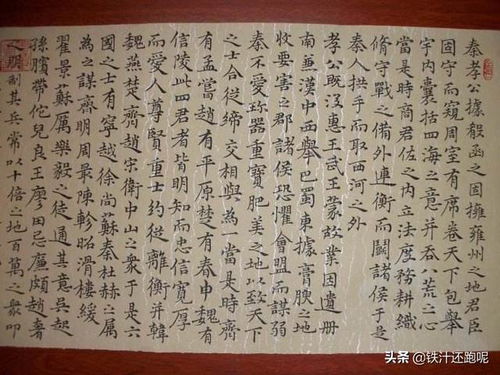 秦孝公據殽函之固擁雍州之地君臣
固守而窺周室有席卷天下包舉
宇內囊括四海之意并吞八荒之心
當是時商君佐之內立法度務耕織
脩守戰之備外連衡而鬬諸侯于是
秦人拱手而取西河之外
孝公既沒惠王武王蒙故業因遺冊
南兼漢中西舉巴蜀東據膏腴之地
收要害之郡諸侯恐懼會盟而謀弱
秦不愛珍器重寶肥美之地以致天下
之士合從締交相與為一當是時齊
有孟嘗趙有平原楚有春申魏有
信陵此四君者皆明知而忠信寬厚
而愛人尊賢重士約從離衡并韓
魏燕楚齊趙宋衛中山之眾于是六
國之士有寧越徐尚蘇秦杜赫之屬
為之謀齊明周最陳軫昭滑樓緩
翟景蘇厲樂毅之徒通其意吳起
孫臏帶佗兒良王廖田忌廉頗趙奢
之朋制其兵常以十倍之地百萬之眾叩
头条 @铁汁还跑呢